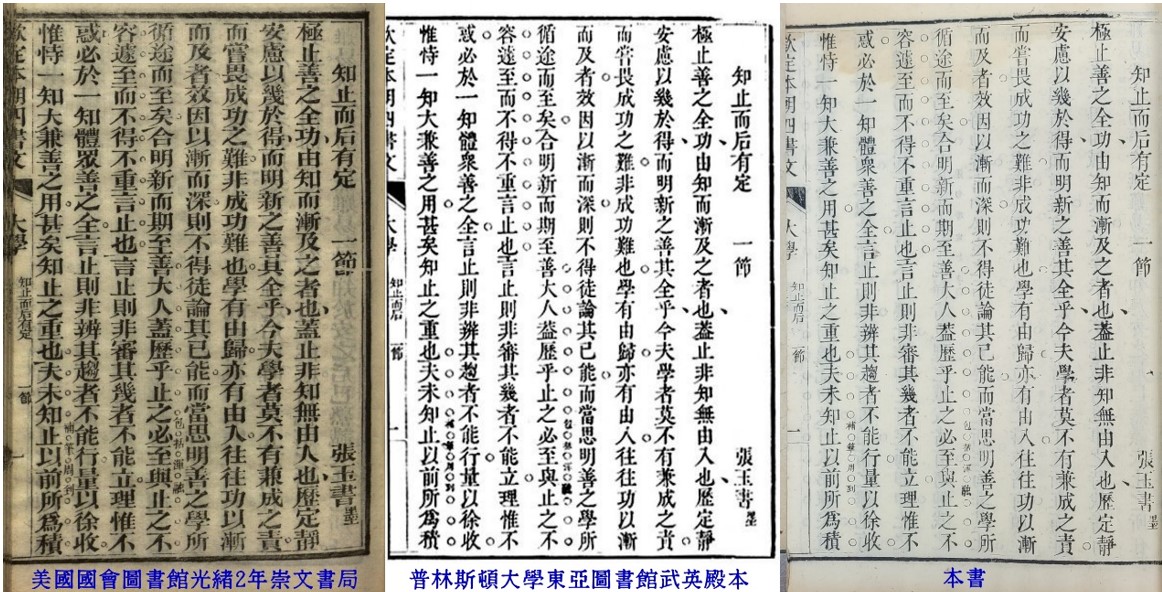 知止而后有定　一節　張玉書墨
極止善之全功由知而漸及之者也蓋止非知無由入也歷定靜
安慮以幾於得而明新之善其全乎今夫學者莫不有兼成之責
而嘗畏成功之難非成功難也學有由歸亦有由入往往功以漸
而及者效因以漸而深則不得徒論其已能而當思明善之學所
循途而至矣合明新而期至善大人蓋歷乎止之必至與止之不
包括渾融
容遽至而不得不重言止也言止則非審其幾者不能立理惟不
惑必於一知體眾善之全言止則非辨其趨者不能行量以徐收
惟恃一知大兼善之用甚矣知止之重也夫未知止以前所爲積
補筆周到
欽定本朝四書文　大學　知止而后有定　一節　一
美國國會圖書館光緒2年崇文書局
知止而后有定　一節　張玉書墨
極止善之全功由知而漸及之者也葢止非知無由入也歷定靜
安慮以幾於得而明新之善其全乎今夫學者莫不有兼成之責
而嘗畏成功之難非成功難也學有由歸亦有由入往往功以漸
而及者效因以漸而深則不得徒論其已能而當思明善之學所
循途而至矣合明新而期至善大人葢歷乎止之必至與止之不
包括渾融
容遽至而不得不重言止也言止則非審其幾者不能立理惟不
惑必於一知體眾善之全言止則非辨其趨者不能行量以徐收
惟恃一知大兼善之用甚矣知止之重也夫未知止以前所爲積
補筆周到
欽定本朝四書文　大學　知止而后　一節　一
普林斯頓大學東亞圖書館武英殿本
知止而后有定　一節　張玉書墨
極止善之全功由知而漸及之者也葢止非知無由入也歷定靜
安慮以幾於得而明新之善其全乎今夫學者莫不有兼成之責
而嘗畏成功之難非成功難也學有由歸亦有由入往往功以漸
而及者效因以漸而深則不得徒論其已能而當思明善之學所
循途而至矣合明新而期至善大人葢歷乎止之必至與止之不
包括渾融
容遽至而不得不重言止也言止則非審其幾者不能立理惟不
惑必於一知體眾善之全言止則非辨其趨者不能行量以徐收
惟恃一知大兼善之用甚矣知止之重也夫未知止以前所爲積
補筆周到
欽定本朝四書文　大學　知止而后　一節　一
本書